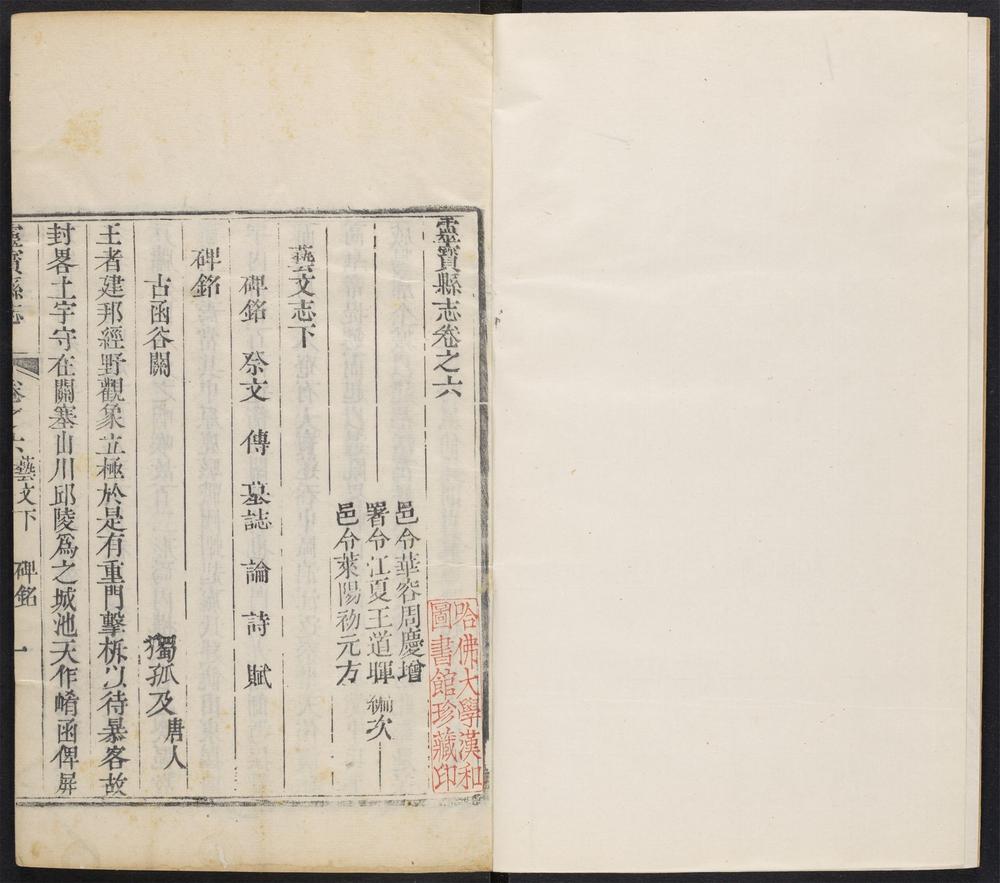 靈寶縣志卷之六
邑令華容周慶增
署令江夏王道暉編次
邑令萊陽初元方
藝文志下
碑銘 祭文 傳 墓誌 論 詩 賦
碑銘
古函谷關
獨孤及唐人
王者建邦經野觀象立極於是有重門擊柝以待暴客故
封畧土宇守在關塞山川邱陵爲之城池天作崤函俾屏
靈寶縣志 卷之六藝文下 碑銘 一
哈佛大學漢和
圖書館珍藏印